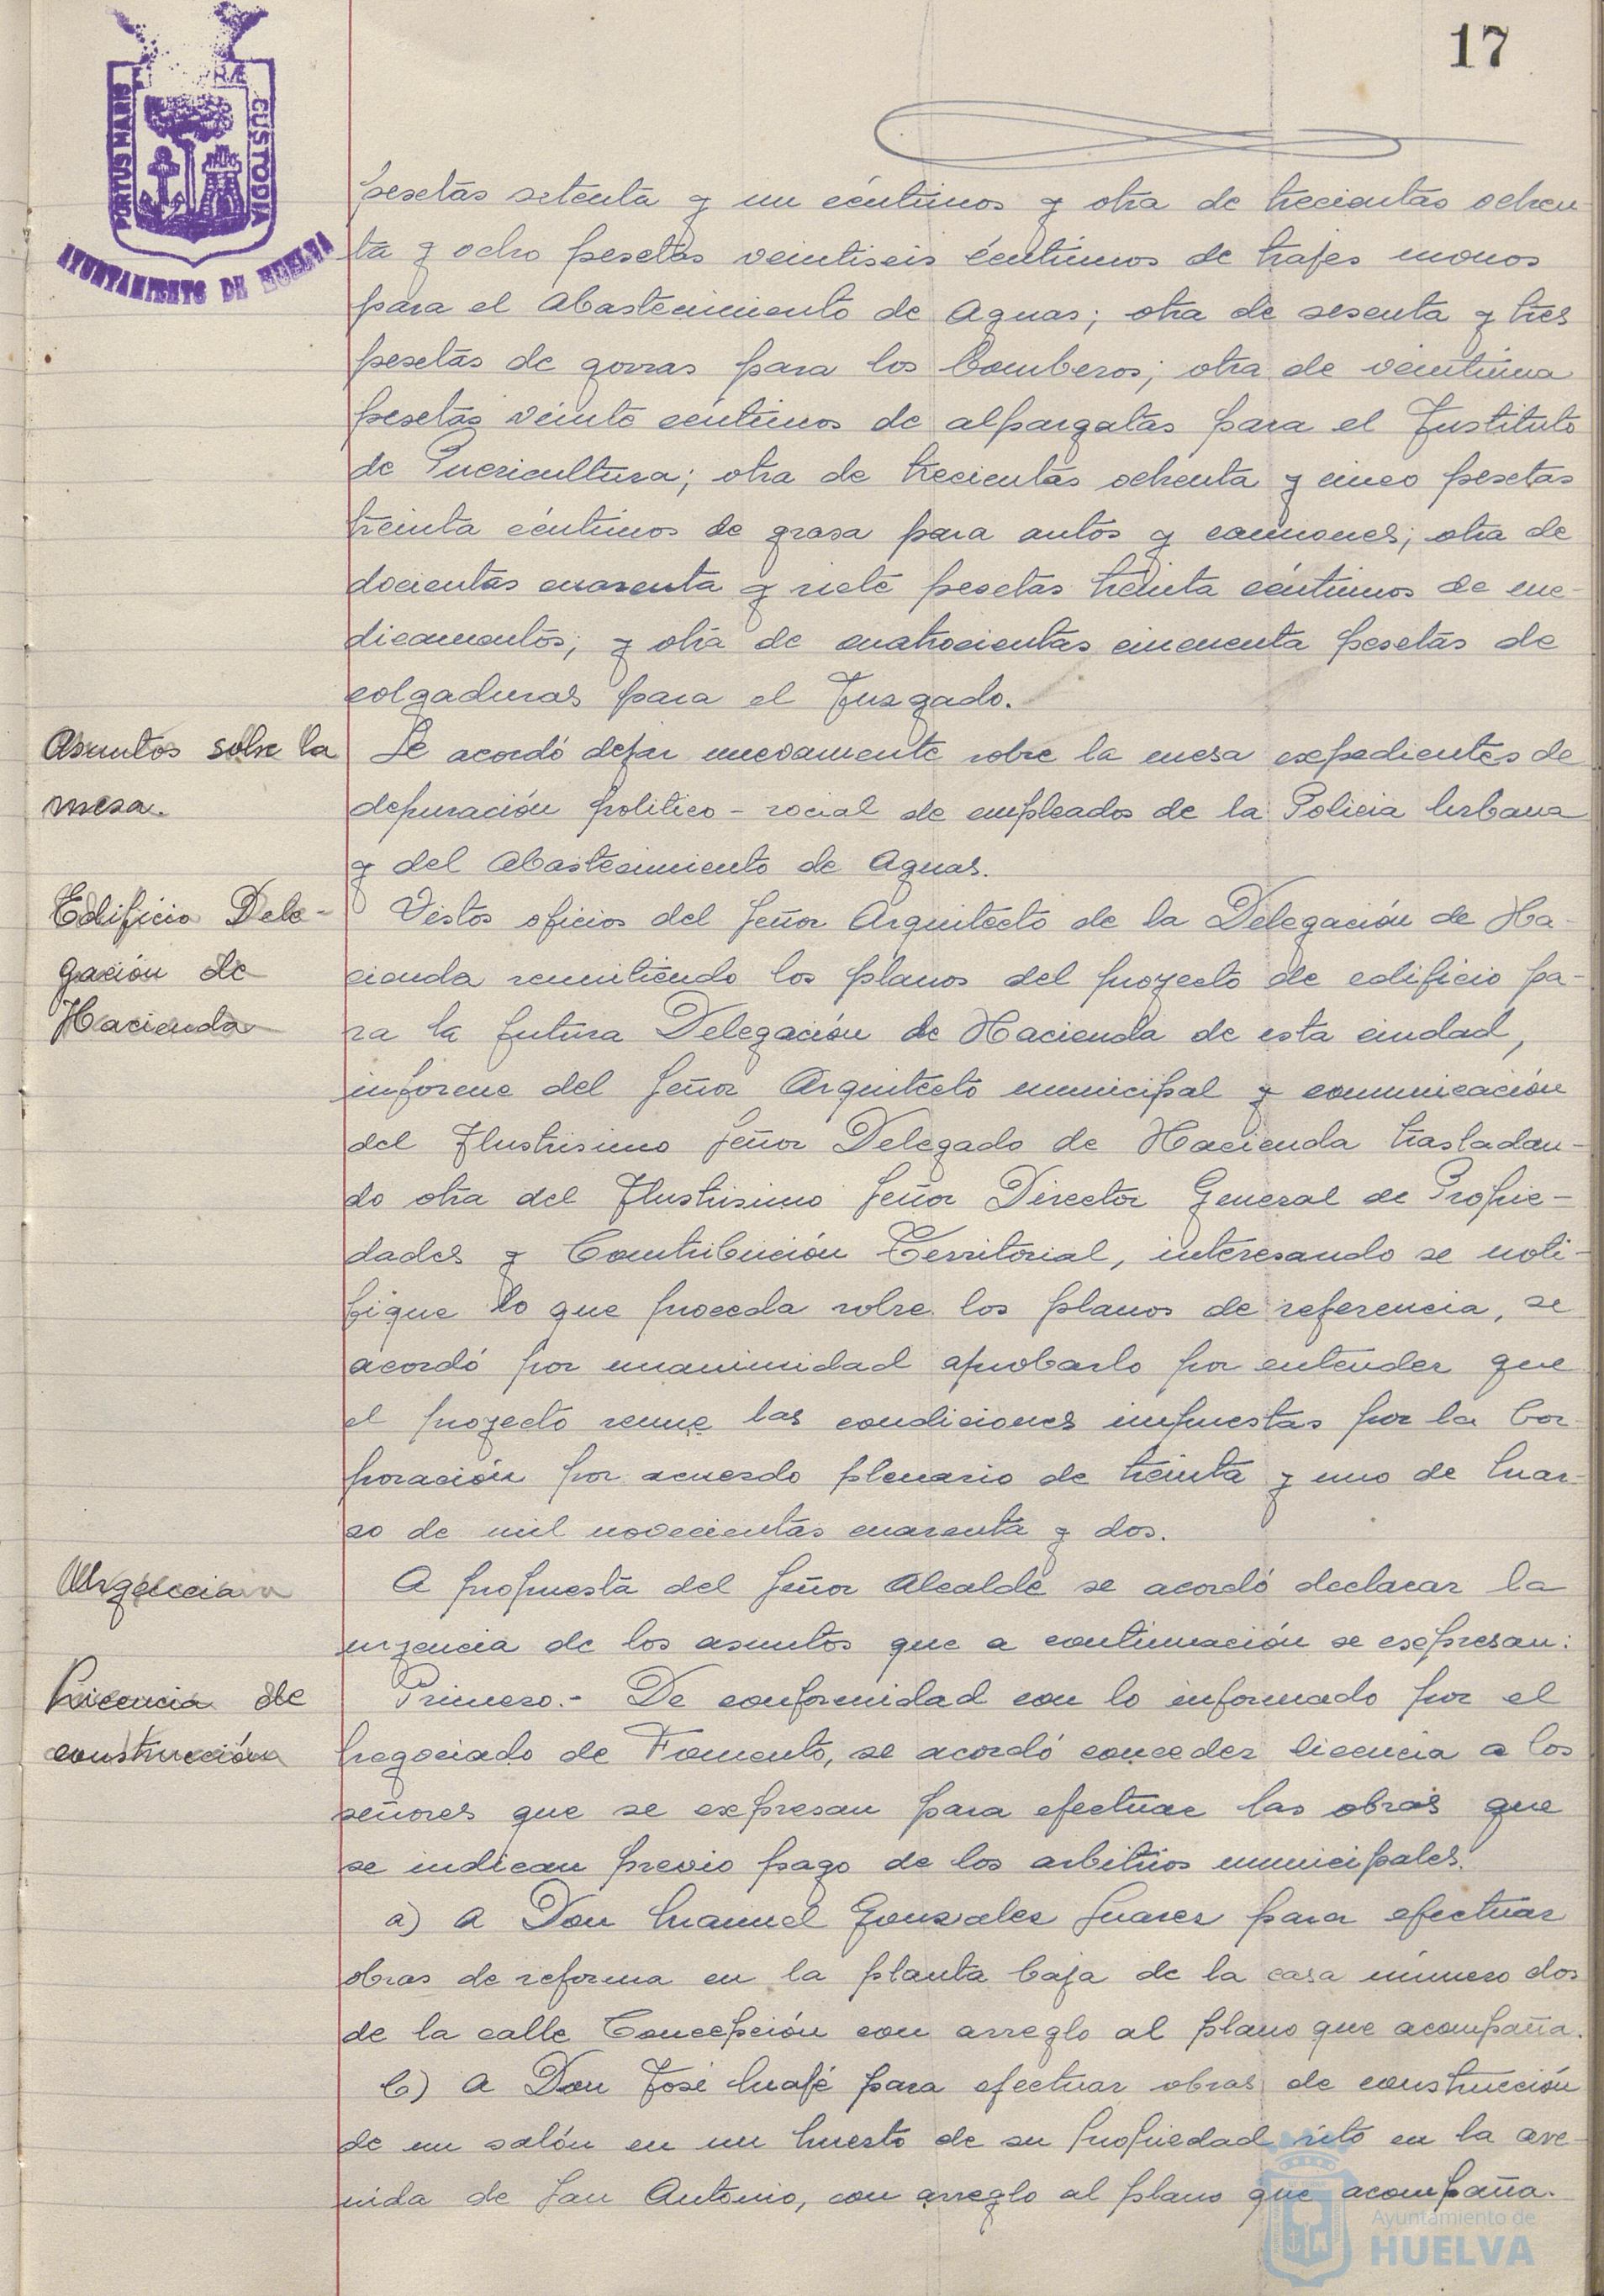 17
PORTUS MARIS
CUSTODIA
AYUNTAMIENTO DE HUELVA
pesetas setenta y un céntimos y otra de trecientas ochen-
ta y ocho pesetas veintiseis céntimos de trajes monos
para el Abastecimiento de Aguas; otra de sesenta y tres
pesetas de gorras para los Bomberos; otra de veintiuna
pesetas veinte céntimos de alpargatas para el Instituto
de Puericultura; otra de trecientas ochenta y cinco pesetas
treinta céntimos de grasa para autos y camiones; otra de
docientas cuarenta y siete pesetas treinta céntimos de me-
dicamentos; y otra de cuatrocientas cincuenta pesetas de
colgaduras para el Juzgado.
Asuntos sobre la
mesa.
Se acordó dejar nuevamente sobre la mesa expedientes de
depuración político-social de empleados de la Policia Urbana
y del Abastecimiento de Aguas.
Edificio Dele-
gación de
Hacienda
Vistos oficios del Señor Arquitecto de la Delegación de Ha-
cienda remitiendo los planos del proyecto de edificio pa-
ra la futura Delegación de Hacienda de esta ciudad,
informe del Señor Arquitecto municipal y comunicación
del Ilustrisimo Señor Delegado de Hacienda trasladan-
do otra del Ilustrisimo Señor Director General de Propie-
dades y Contribución Territorial, interesando se noti-
fique lo que proceda sobre los planos de referencia, se
acordó por unanimidad aprobarlo por entender que
el proyecto reune las condiciones impuestas por la Cor-
poración por acuerdo plenario de treinta y uno de Mar-
zo de mil novecientas cuarenta y dos.
Urgencia
A propuesta del Señor Alcalde se acordó declarar la
urgencia de los asuntos que a continuación se expresan:
Licencia de
construcción
Primero.- De conformidad con lo informado por el
Negociado de Fomento, se acordó conceder licencia a los
señores que se expresan para efectuar las obras que
se indican previo pago de los arbitrios municipales.
a) A Don Manuel Gonzalez Suarez para efectuar
obras de reforma en la planta baja de la casa número dos
de la calle Concepción con arreglo al plano que acompaña.
b) A Don José Mafé para efectuar obras de construcción
de un salón en un huerto de su propiedad sito en la ave-
nida de San Antonio, con arreglo al plano que acompaña.
Ayuntamiento de
HUELVA